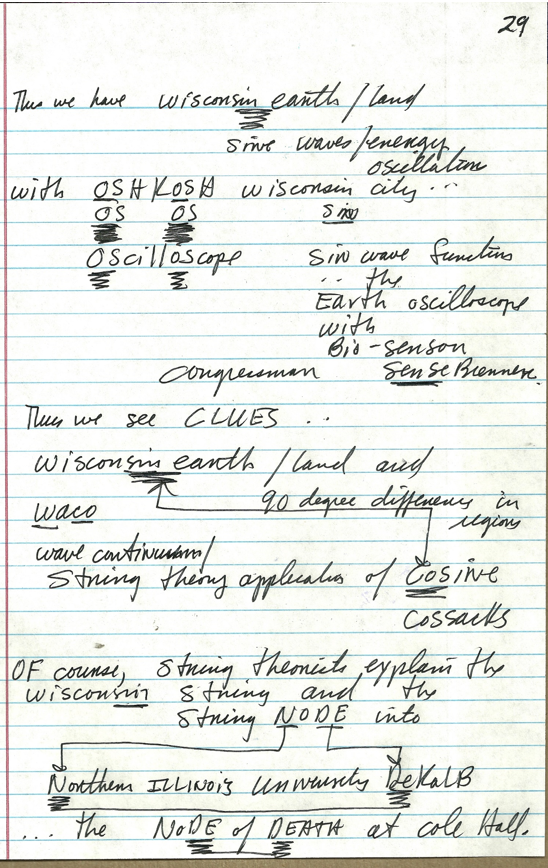 29
Thus we have wisconsin earth/land
sine waves/energy
oscillation
with OSH/KOSH wisconsin city ..
OS OS sin
OScilloscope sin wave functions
.. the
Earth oscilloscope
with
Bio-sensor
Congressman SenSeBrennere.
Thus we see CLUES ..
wisconsin earth/land and
waco 90 degree difference in
regions
wave continuum/
String theory application of Cosine
Cossacks
OF course, string theorists explain the
wisconsin string and the
string NODE into
Northern ILLINOIS University DeKalB
... the NoDE of DEATH at cole Hall.